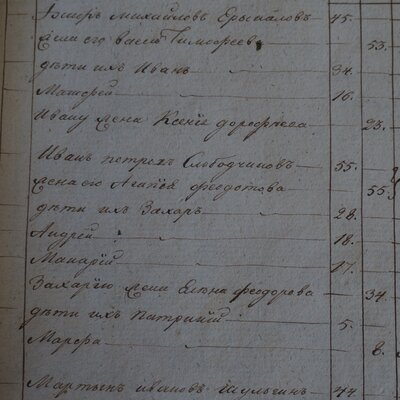 Михайловъ 45.
жена его Тимофеева 53.
дѣти ихъ Иванъ 34.
Матфей 16.
Ивану жена Ксенiя дорофѣева 23.
Иванъ петровъ Слободчиковъ 55.
жена его Агапiя федотова 55
дѣти ихъ Захаръ 28.
Андрей 18.
Макарiй 17.
Захарiю жена Елена феодорова 34.
дѣти ихъ Патрикiй 5.
Марфа 8.
Мартынъ ивановъ Шульгинъ 44